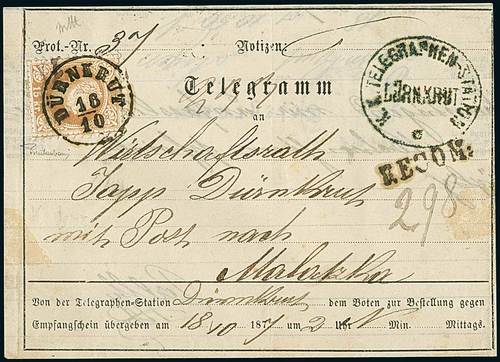 Prot.-Nr. 37 Notizen:
DÜRNKRUT
16
10
Telegramm
K.K. TELEGRAPHEN-STATION
DÜRNKRUT
an
Wirtschaftsrath
RECOM.
Japp Dürnkrut
298
mit Post nach
Malatzka
Von der Telegraphen-Station Dürnkrut dem Boten zur Bestellung gegen
Empfangschein übergeben am 18/10 187 um 2 Uhr Min. Mittags.